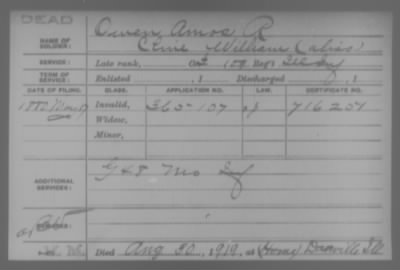 DEAD
NAME OF SOLDIER: Owen Amos R
Cline William (alias)
SERVICE: Late rank, Co 109 Reg't Ill Inf
TERM OF SERVICE: Enlisted , 1 Discharged , 1
DATE OF FILING. CLASS. APPLICATION NO. LAW. CERTIFICATE NO.
1880 May 19 Invalid, 365-107 716207
Widow,
Minor,
ADDITIONAL SERVICES: G 48 Mo Inf
REMARKS:
Died Aug 30, 1919, at Home Danville Ill